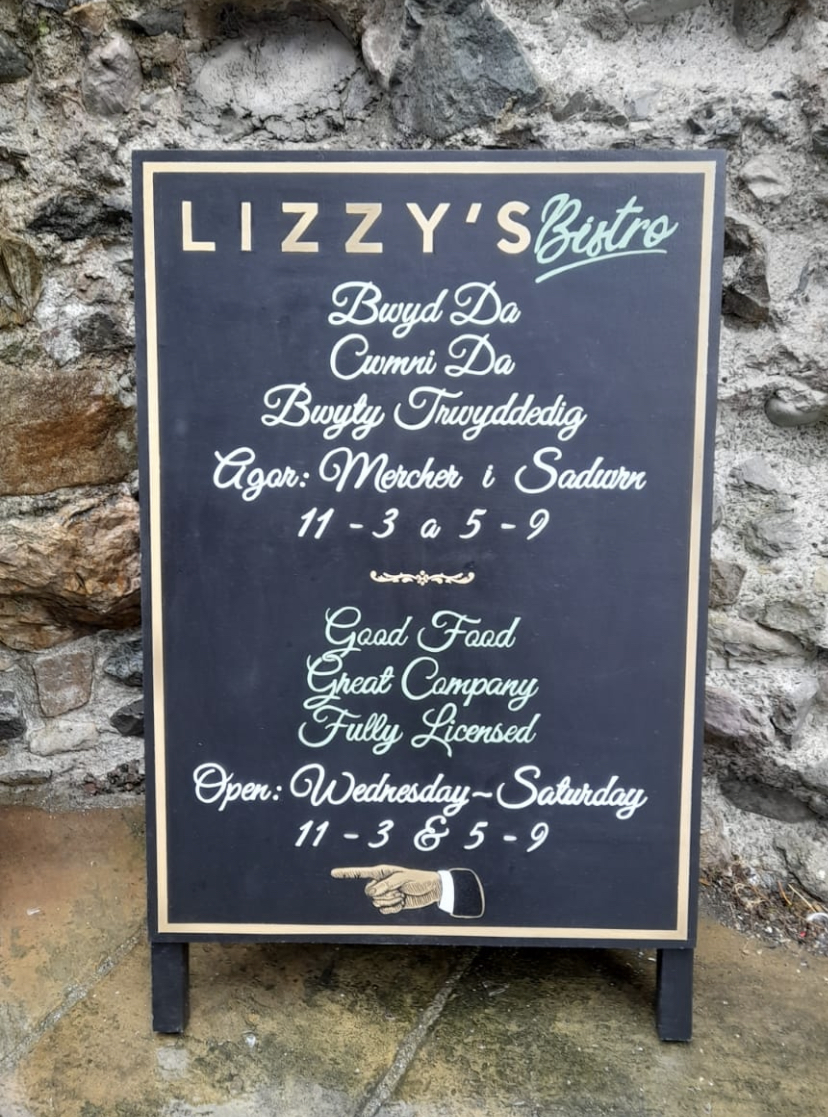 LIZZY'S Bistro
Bwyd Da
Cwmni Da
Bwyty Trwyddedig
Agor: Mercher i Sadwrn
11 - 3 a 5 - 9
Good Food
Great Company
Fully Licensed
Open: Wednesday~Saturday
11 - 3 & 5 - 9